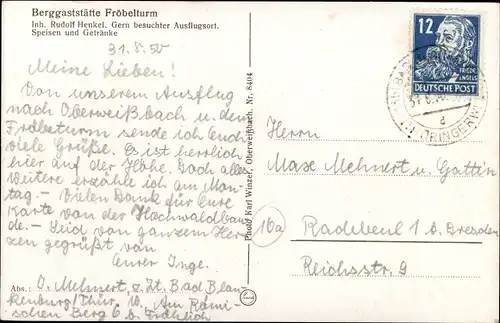 Berggaststätte Fröbelturm
Inh. Rudolf Henkel. Gern besuchter Ausflugsort.
Speisen und Getränke
31.8.50
Meine Lieben!
Von unserem Ausflug
nach Oberweißbach u. dem
Fröbelturm sende ich Euch
viele Grüße. Es ist herrlich
hier auf der Höhe. Doch alles
Weitere erzähle ich am Mon-
tag. – Vielen Dank für Eure
Karte von der Hochwaldbau-
de. – Seid von ganzem Her-
zen gegrüßt von
Eurer Inge.
Abs.: I. Mehnert, z. Zt. Bad Blan-
kenburg/Thür. W. Am Römi-
schen Berg 6 b. Fröhlich
Photo Karl Winzer, Oberweißbach. Nr. 8404
12
FRIEDR.
ENGELS
DEUTSCHE POST
d
Herrn
Max Mehnert u. Gattin
10a
Radebeul 1 b. Dresden
Reichsstr. 9